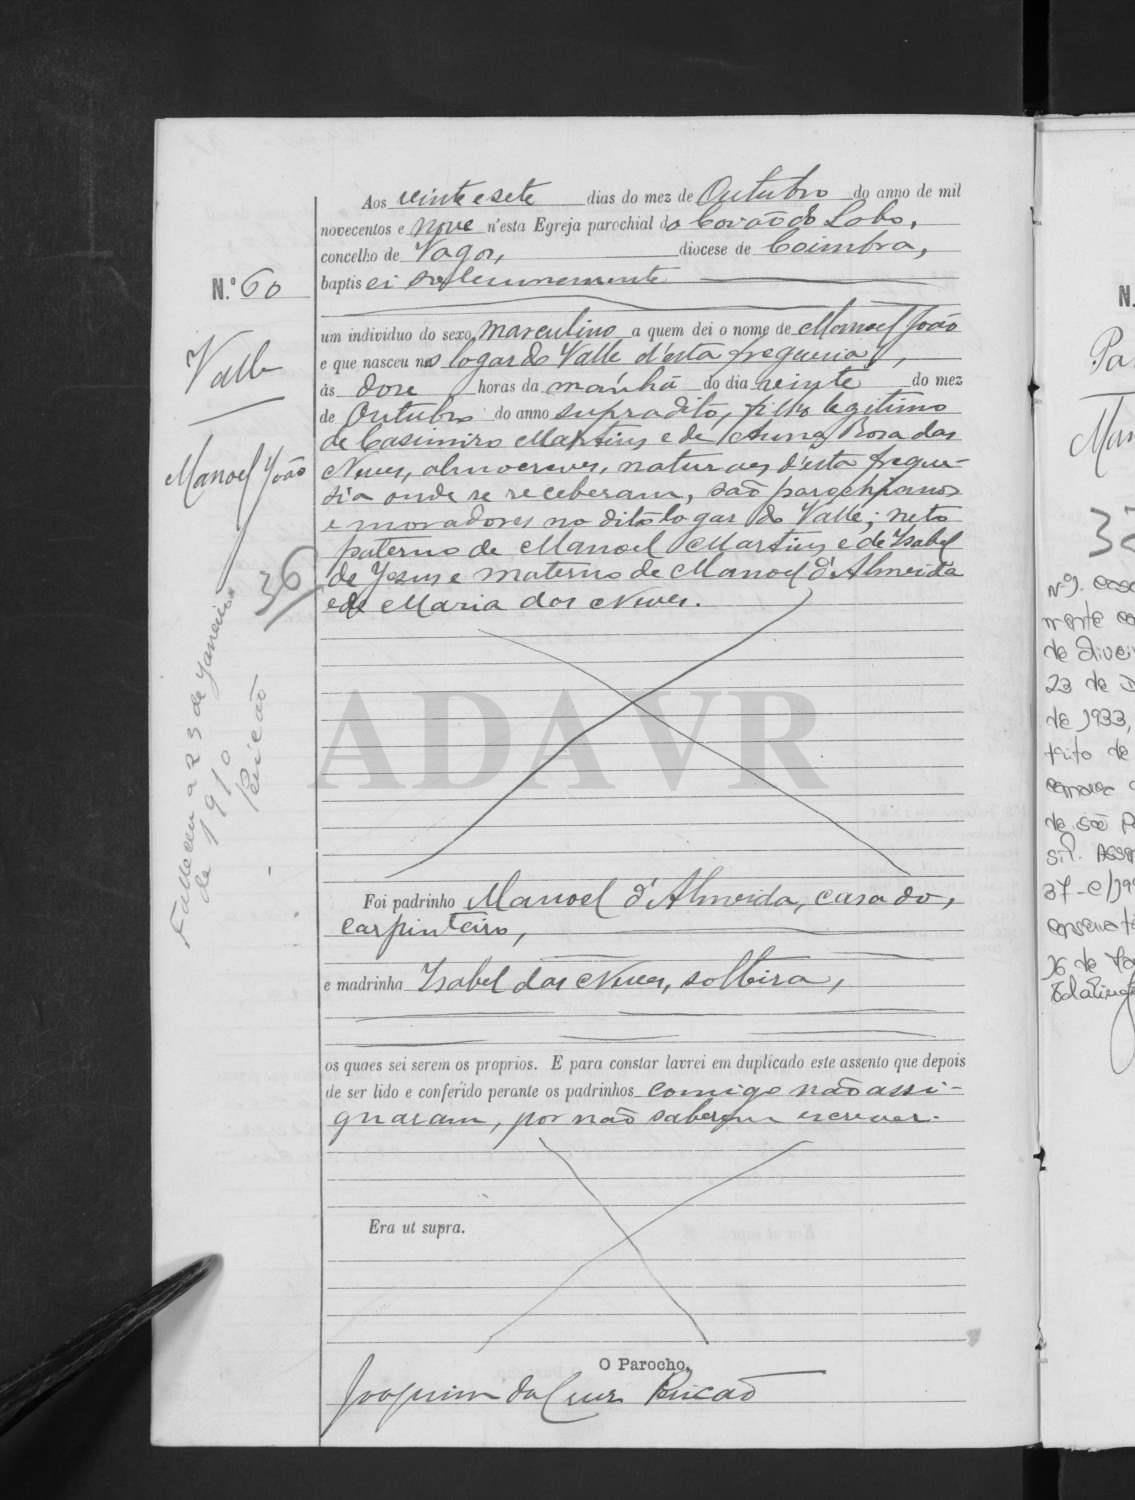 Aos vinte e sete dias do mez de Outubro do anno de mil
novecentos e nove n'esta Egreja parochial do Covão do Lobo,
concelho de Vagos, diocese de Coimbra,
baptisei solemnemente
um individuo do sexo masculino a quem dei o nome de Manoel João
e que nasceu no logar do Valle d'esta freguesia,
ás doze horas da manhã do dia vinte do mez
de Outubro do anno supradito, filho legitimo
de Casimiro Martins e de Anna Rosa das
Neves, almocreves, naturaes d'esta fregue-
sia onde se receberam, são parochianos
e moradores no dito logar do Valle; neto
paterno de Manoel Martins e de Isabel
de Jesus e materno de Manoel d'Almeida
e de Maria das Neves.
Foi padrinho Manoel d'Almeida, casado,
carpinteiro,
e madrinha Isabel das Neves, solteira,
os quaes sei serem os proprios. E para constar lavrei em duplicado este assento que depois
de ser lido e conferido perante os padrinhos comigo não assi-
gnaram, por não saberem escrever.
Era ut supra.
O Parocho,
Joaquim da Cruz
N.º 60
Valle
Manoel João
36
Falleceu a 23 de Janeiro
de 1910
ADAVR
N.
32
nº
de
23 de D
de 1933,
de são P